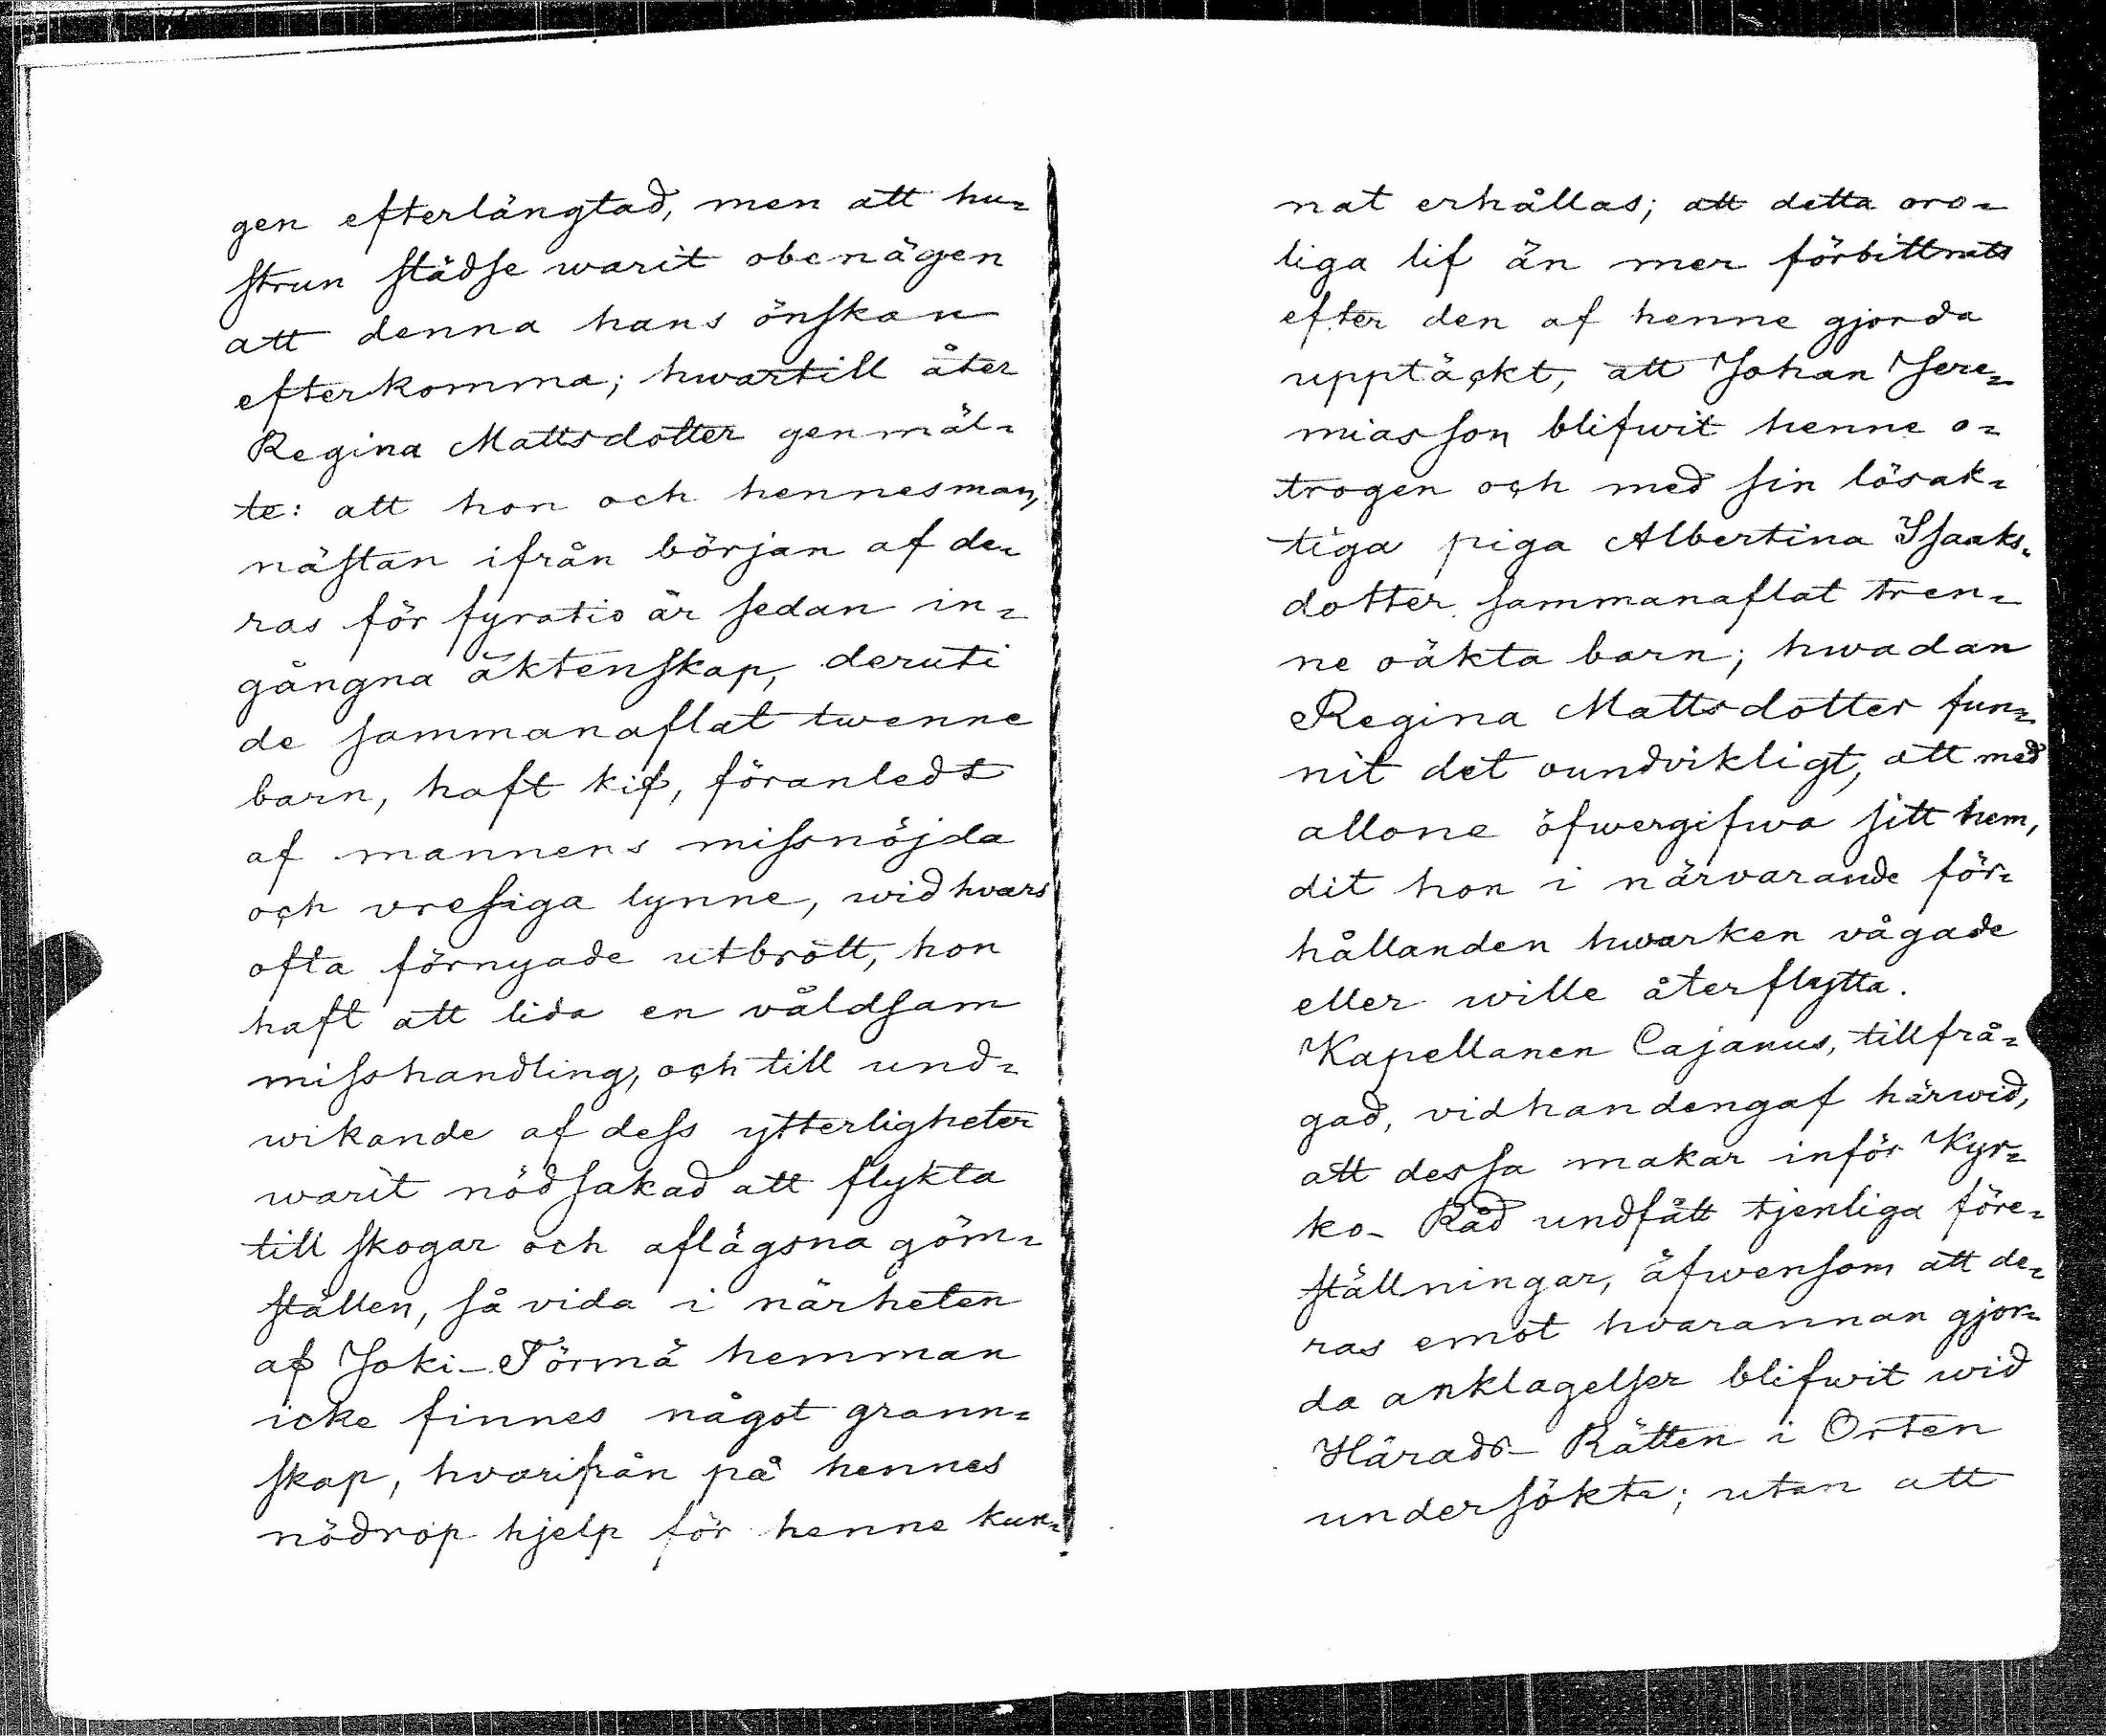 gen efterlängtad, men att hu-
strun städse warit obenägen
att denna hans önskan
efterkomma; hwartill åter
Regina Mattsdotter genmäl-
te: att hon och hennes man,
nästan ifrån början af de-
ras för fyratio år sedan in-
gångna äktenskap, deruti
de sammanaflat twenne
barn, haft kif, föranledt
af mannens missnöjda
och vresiga lynne, wid hvars
ofta förnyade utbrott, hon
haft att lida en våldsam
misshandling, och till und-
wikande af dess ytterligheter
warit nödsakad att flykta
till skogar och aflägsna göm-
ställen, så vida i närheten
af Joki-Törmä hemman
icke finnes något grann-
skap, hvarifrån på hennes
nödrop hjelp för henne kun-
nat erhållas; att detta oro-
liga lif än mer förbittrats
efter den af henne gjorda
upptäckt, att Johan Jere-
miasson blifwit henne o-
trogen och med sin lösak-
tiga piga Albertina Isaaks-
dotter sammanaflat tren-
ne oäkta barn; hwadan
Regina Mattsdotter fun-
nit det oundvikligt, att med
allone öfwergifwa sitt hem,
dit hon i närvarande för-
hållanden hwarken vågade
eller wille återflytta.
Kapellanen Cajanus, tillfrå-
gad, vidhandengaf härwid,
att dessa makar inför Kyr-
ko-Råd undfått tjenliga före-
ställningar, äfwensom att de-
ras emot hvarannan gjor-
da anklagelser blifwit wid
Härads-Rätten i Orten
undersökta; utan att